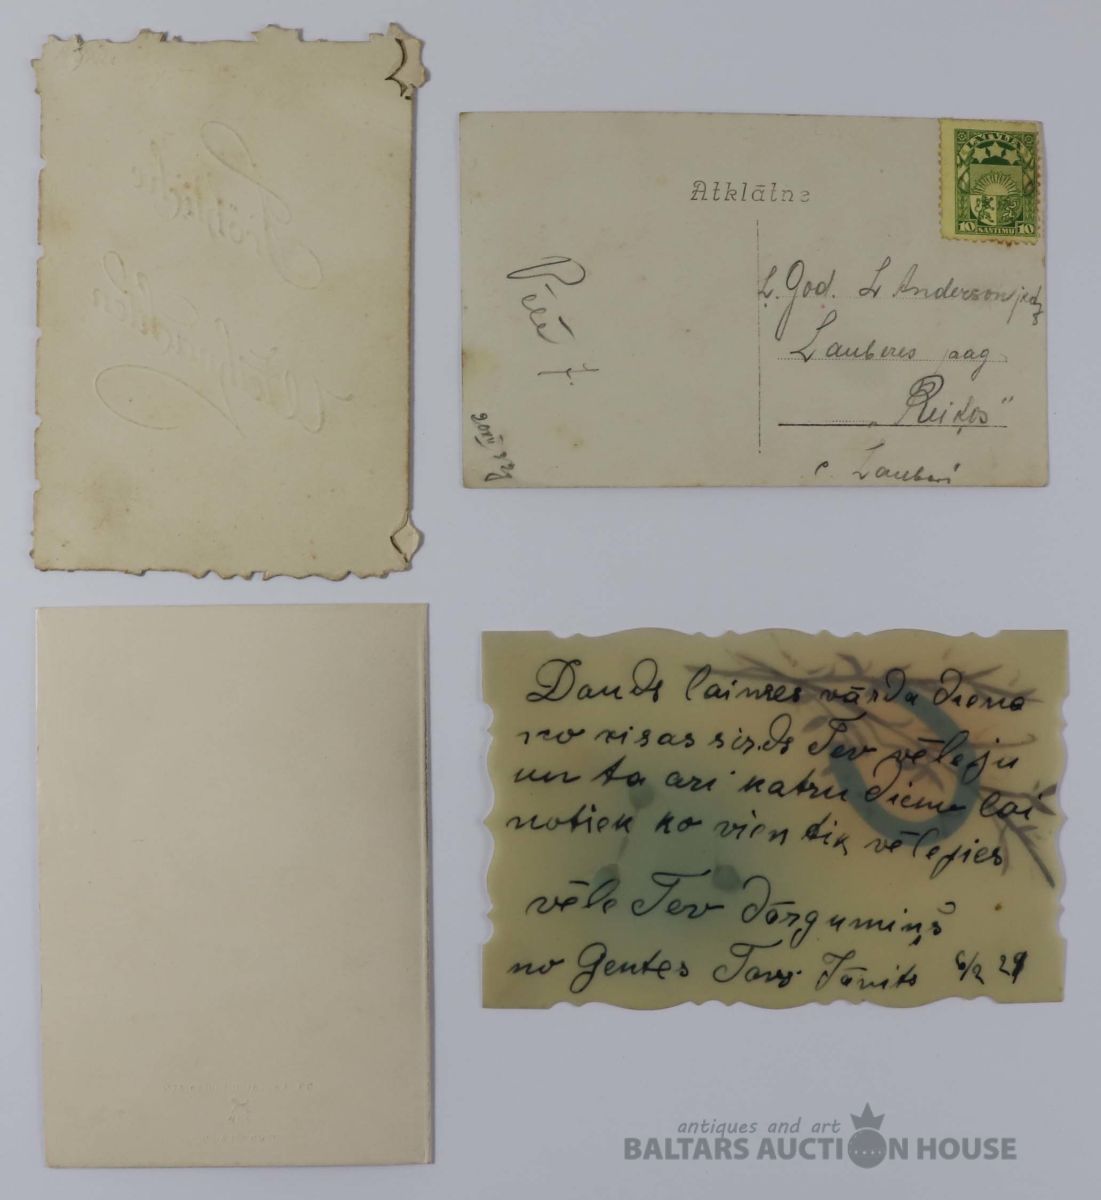 Fröhliche
Weihnachten
Atklātne
LATVIJA
10 SANTIMU 10
L. God. L Anderson jkdz
Lauberes pag.
"Reiķos"
c. Lauberi
Daudz laimes vārda dienā
no visas sirds Tev vēleju
un ta ari katru dienu lai
notiek ko vien tik vēlejies
vēle Tev dārgumiņš
no Gentes Tavs Jānits 6/2 29
antiques and art
BALTARS AUCTION HOUSE